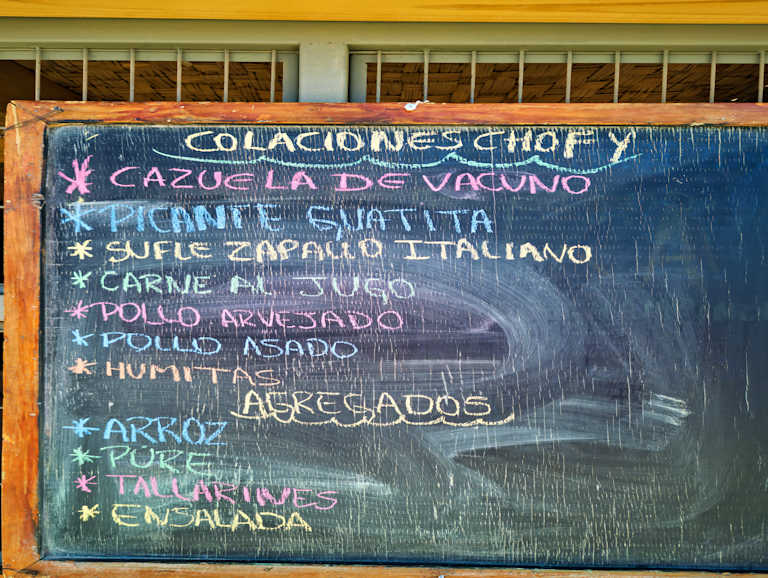 COLACIONES CHOFY
* CAZUELA DE VACUNO
* PICANTE GUATITA
* SUFLE ZAPALLO ITALIANO
* CARNE AL JUGO
* POLLO ARVEJADO
* POLLO ASADO
* HUMITAS
AGREGADOS
* ARROZ
* PURE
* TALLARINES
* ENSALADA